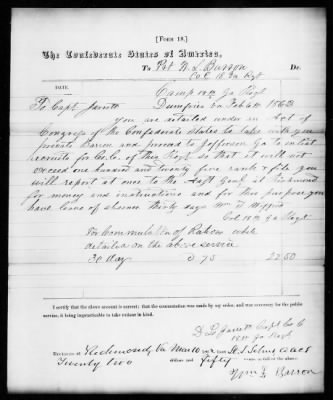 [FORM 18.]
The Confederate States of America,
To Pvt W. L. Barron Dr.
Co C 18 Ga Regt
DATE.
Camp 18th Ga Regt
Dumfries Va Feb 6th 1862
To Capt Jarrett
you are detailed under an Act of
Congress of the Confederate States to take with you
private Barron and proceed to Jefferson Ga to enlist
recruits for Co. C. of this Regt so that it will not
exceed one hundred and twenty five rank & file you
will report at once to the Adjt Genl at Richmond
for money and instructions and for this purpose you
have leave of absence thirty days Wm T Wofford
Col 18th Ga Regt
For Commutation of Rations while
detailed on the above service
30 days @ 75 22.50
I certify that the above account is correct; that the commutation was made by my order, and was necessary for the public
service, it being impracticable to take rations in kind.
D L Jarrett Capt Co C
18th Ga Regt
RECEIVED at Richmond, Va
Twenty two dollars and fifty cents, in full of the above
Wm L Barron